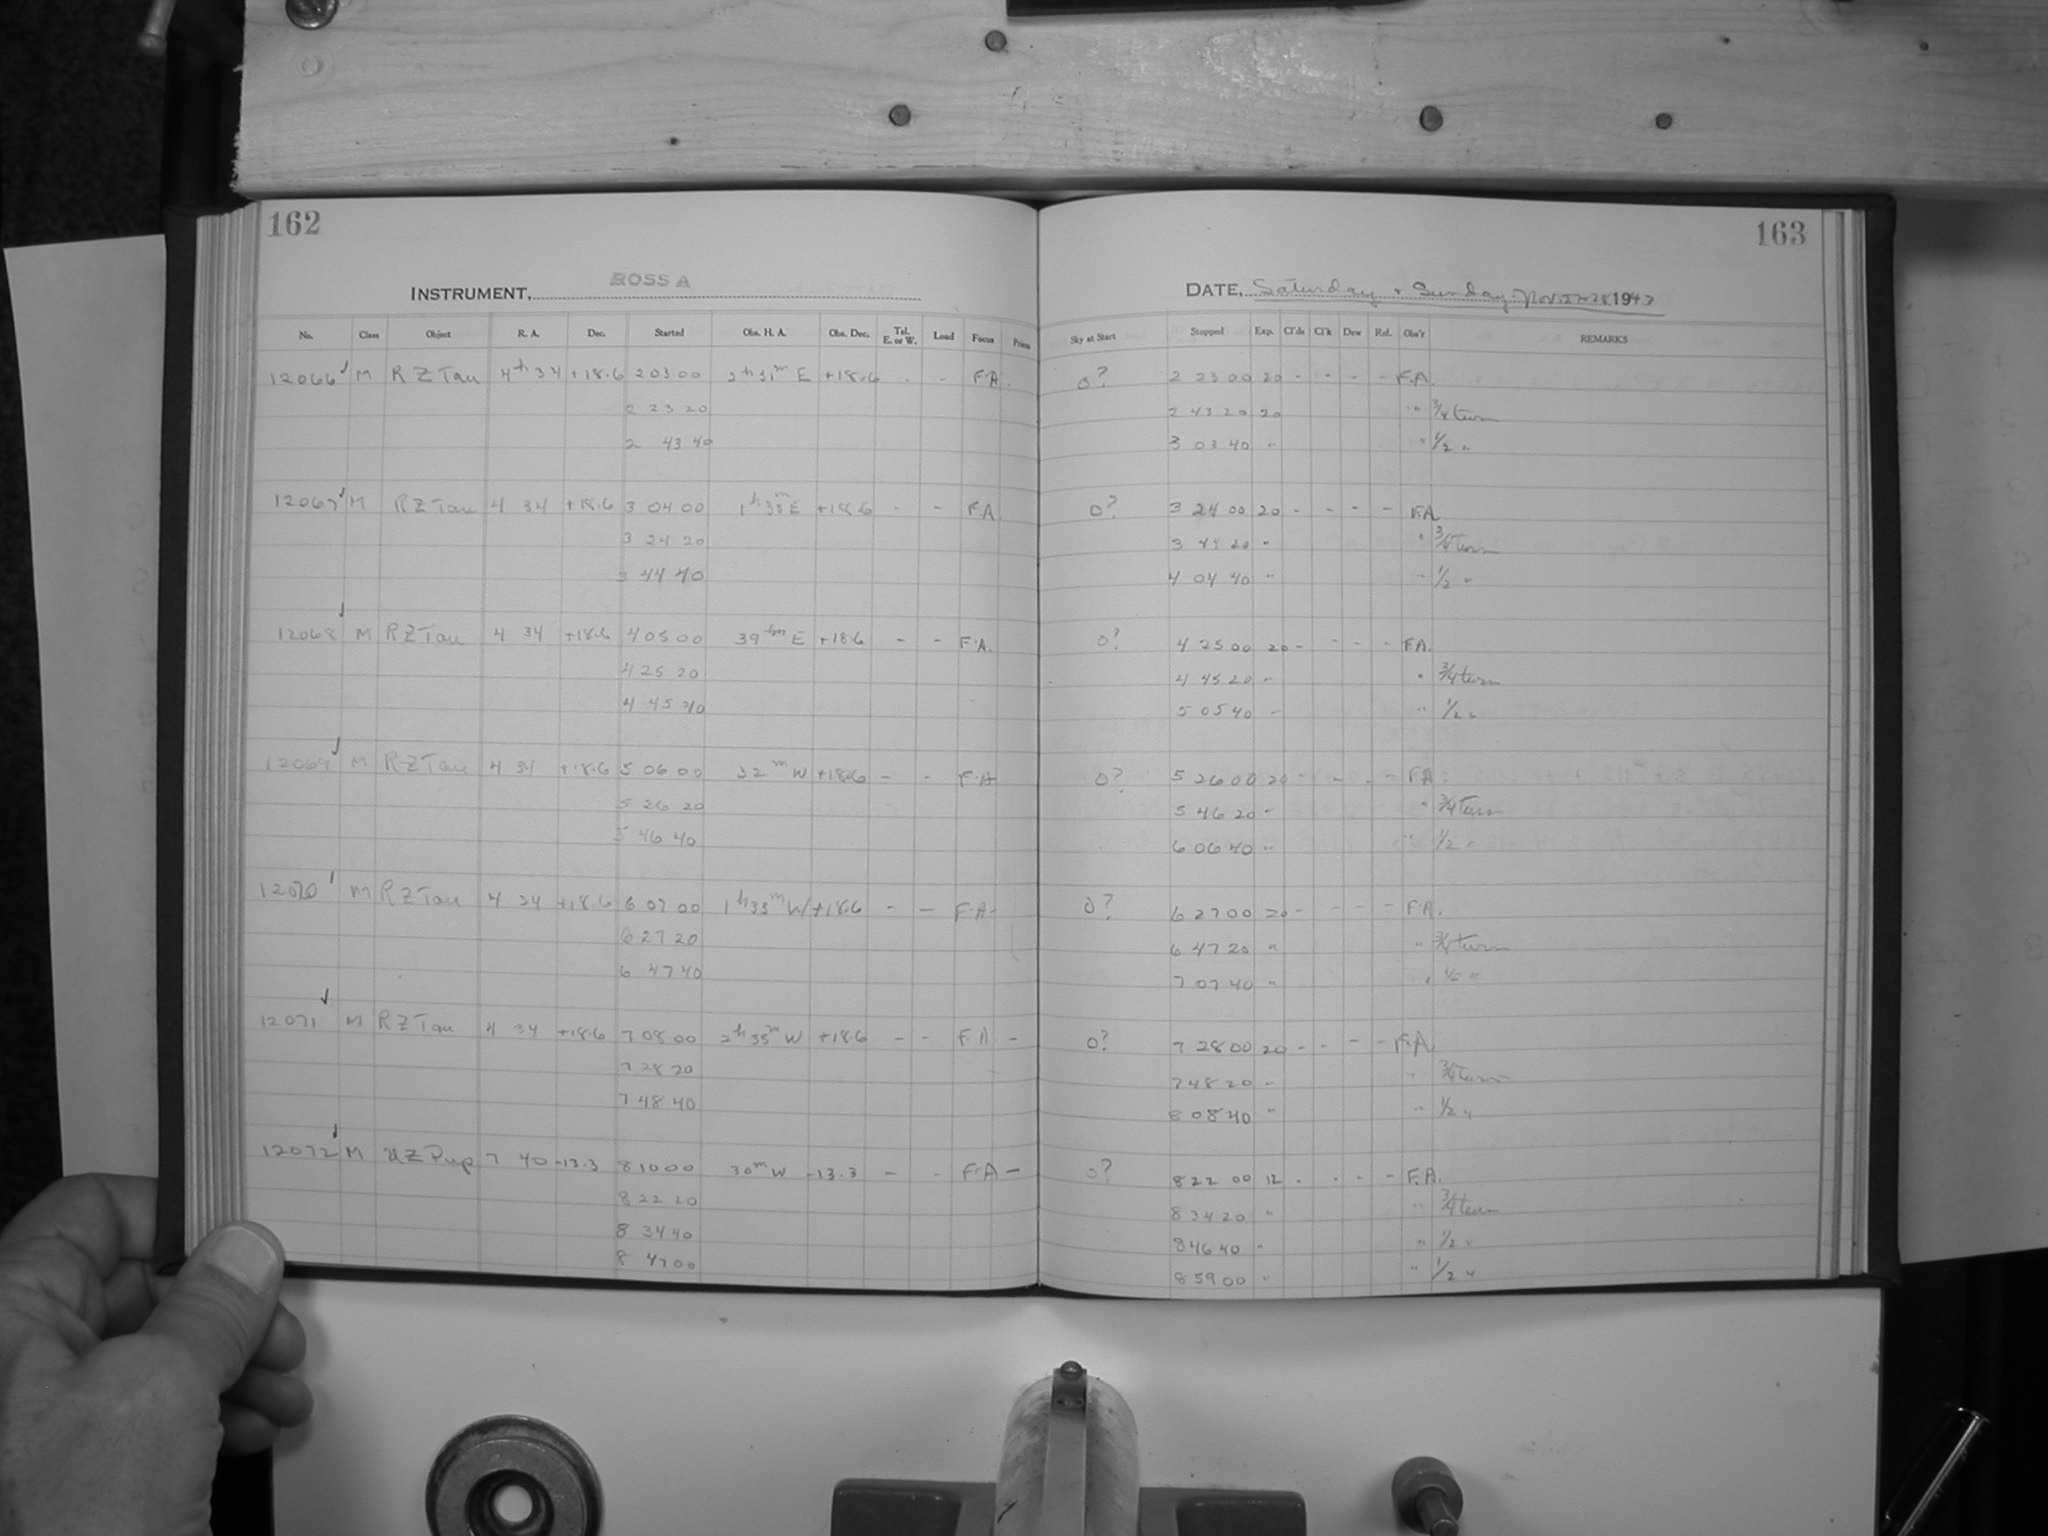 162
INSTRUMENT, ROSS A
No. Class Object R. A. Dec. Started Obs. H. A. Obs. Dec. Tel. E. or W. Load Focus Prism
12066 M RZ Tau 4h 34 +18.6 2 03 00 2h 31m E +18.6 - - F.A.
2 23 20
2 43 40
12067 M RZ Tau 4 34 +18.6 3 04 00 +18.6 - - F.A.
3 24 20
3 44 40
12068 M RZ Tau 4 34 +18.6 4 05 00 E +18.6 - - F.A.
4 25 20
4 45 40
12069 M RZ Tau 4 34 +18.6 5 06 00 32m W +18.6 - - F.A
5 26 20
5 46 40
12070 M RZ Tau 4 34 +18.6 6 07 00 1h 33m W +18.6 - - F.A-
6 27 20
6 47 40
12071 M RZ Tau 4 34 +18.6 7 08 00 2h 35m W +18.6 - - F.A -
7 28 20
7 48 40
12072 M UZ Pup 7 40 -13.3 8 10 00 30m W -13.3 - - F.A -
8 22 20
8 34 40
8 47 00
163
DATE, Saturday + Sunday, Nov. 27-28 194
Sky at Start Stopped Exp. Cl'ds Cl'k Dew Ref. Obs'r REMARKS
0? 2 23 00 20 - - - - F.A.
2 43 20 20 " 3/4 turn
3 03 40 " " 1/2 "
0? 3 24 00 20 - - - - F.A.
3 44 20 " " 3/4 turn
4 04 40 " " 1/2 "
0? 4 25 00 20 - - - - F.A.
4 45 20 " " 3/4 turn
5 05 40 " " 1/2 "
0? 5 26 00 20 - - - - F.A.
5 46 20 " " 3/4 turn
6 06 40 " " 1/2 "
0? 6 27 00 20 - - - - F.A.
6 47 20 " " 3/4 turn
7 07 40 " " 1/2 "
0? 7 28 00 20 - - - - F.A.
7 48 20 " " 3/4 turn
8 08 40 " " 1/2 "
0? 8 22 00 12 - - - - F.A.
8 34 20 " " 3/4 turn
8 46 40 " " 1/2 "
8 59 00 " " 1/2 "